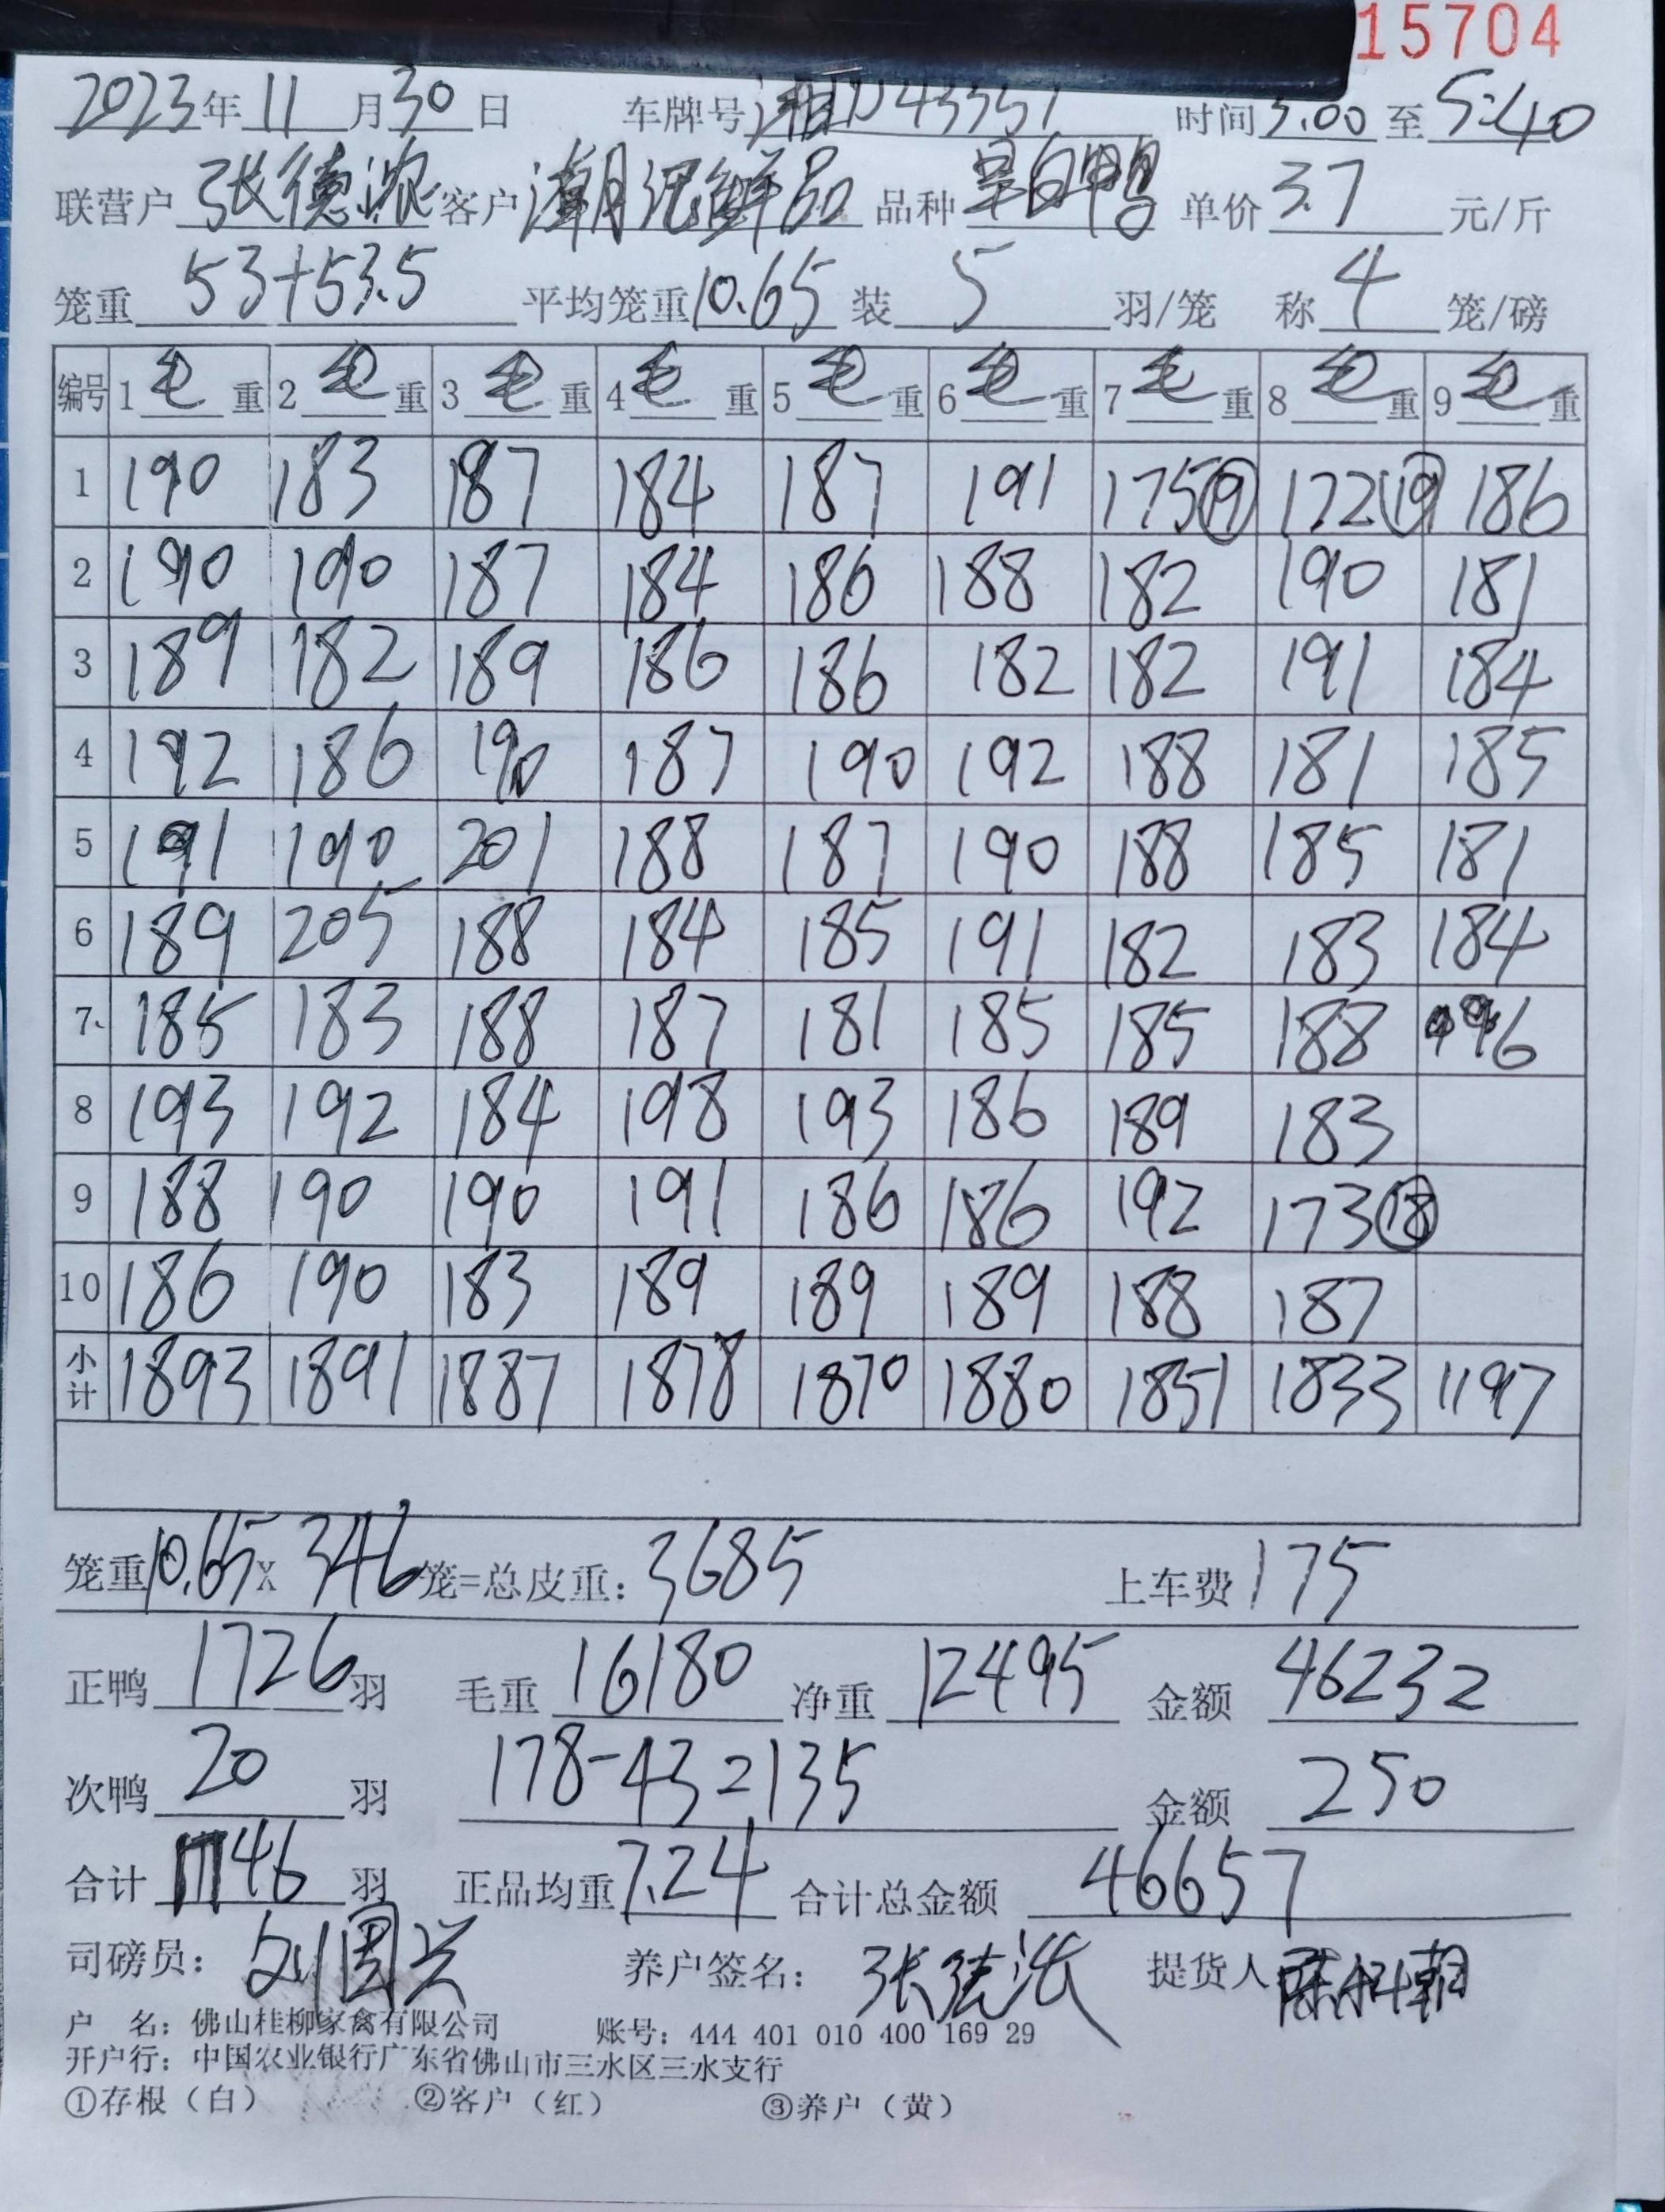 15704
2023年11月30日 车牌号 湘N43357 时间3.00至5:40
联营户 张德浓 客户 潮记鲜品 品种 白鸭 单价 3.7 元/斤
笼重 53+53.5 平均笼重10.65 装 5 羽/笼 称 4 笼/磅
编号 1毛重 2毛重 3毛重 4毛重 5毛重 6毛重 7毛重 8毛重 9毛重
1 190 183 187 184 187 191 175⑲ 172⑲ 186
2 190 190 187 184 186 188 182 190 181
3 189 182 189 186 186 182 182 191 184
4 192 186 190 187 190 192 188 181 185
5 191 190 201 188 187 190 188 185 181
6 189 205 188 184 185 191 182 183 184
7 185 183 188 187 181 185 185 188 96
8 193 192 184 198 193 186 189 183
9 188 190 190 191 186 186 192 173⑱
10 186 190 183 189 189 189 188 187
小计 1893 1891 1887 1878 1870 1880 1851 1833 1197
笼重10.65x 346笼=总皮重：3685 上车费 175
正鸭 1726 羽 毛重 16180 净重 12495 金额 46232
次鸭 20 羽 178-43=135 金额 250
合计 1746 羽 正品均重 7.24 合计总金额 46657
司磅员： 刘国兴 养户签名： 张德浓 提货人
户 名：佛山桂柳家禽有限公司 账号：444 401 010 400 169 29
开户行：中国农业银行广东省佛山市三水区三水支行
①存根（白） ②客户（红） ③养户（黄）